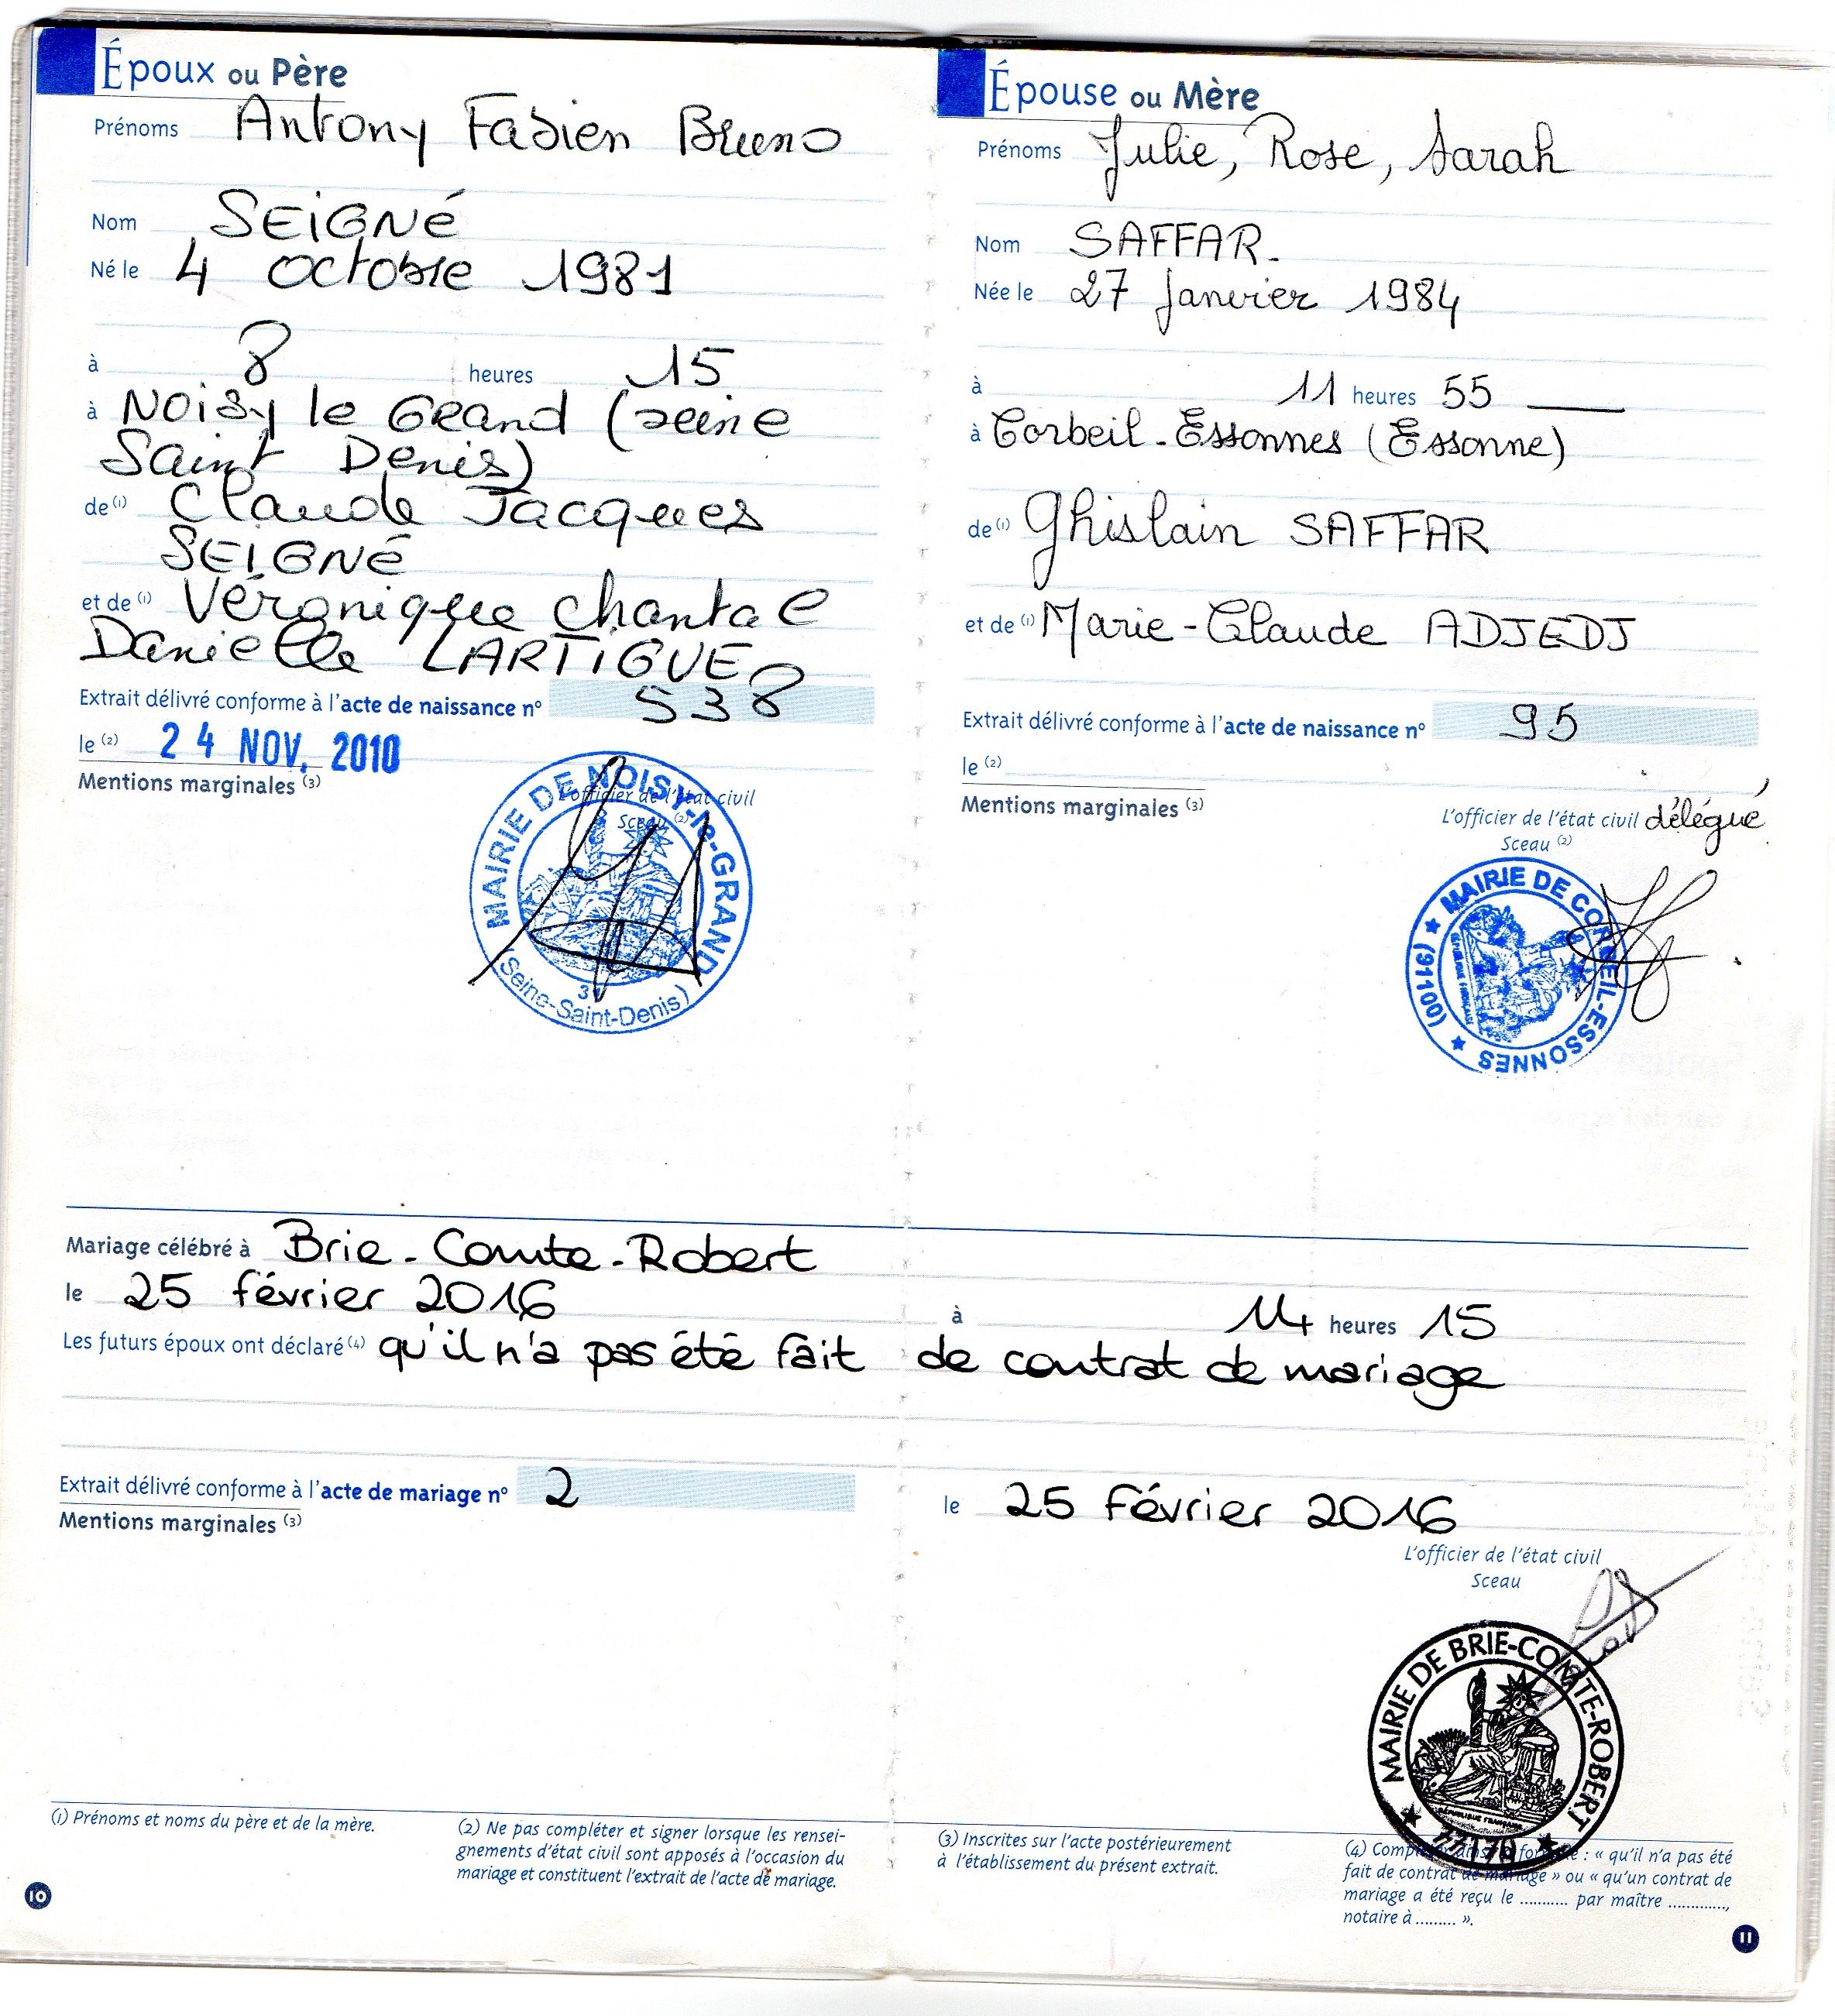 Époux ou Père
Prénoms Antony Fabien Bruno
Nom SEIGNÉ
Né le 4 octobre 1981
à 8 heures 15
à NOISY le GRAND (seine
Saint Denis)
de (1) Claude Jacques
SEIGNÉ
et de (1) Véronique Chantal
Danielle LARTIGUE
Extrait délivré conforme à l'acte de naissance n° 538
le (2) 24 NOV. 2010
Mentions marginales (3)
L'officier de l'état civil
Sceau (2)
MAIRIE DE NOISY-le-GRAND
(Seine-Saint-Denis)
Épouse ou Mère
Prénoms Julie, Rose, Sarah
Nom SAFFAR
Née le 27 Janvier 1984
à 11 heures 55
à Corbeil-Essonnes (Essonne)
de (1) Ghislain SAFFAR
et de (1) Marie-Claude ADJEDJ
Extrait délivré conforme à l'acte de naissance n° 95
le (2)
Mentions marginales (3)
L'officier de l'état civil délégué
Sceau (2)
MAIRIE DE CORBEIL-ESSONNES
(91100)
Mariage célébré à Brie-Comte-Robert
le 25 février 2016 à 14 heures 15
Les futurs époux ont déclaré (4) qu'il n'a pas été fait de contrat de mariage
Extrait délivré conforme à l'acte de mariage n° 2 le 25 Février 2016
Mentions marginales (3)
L'officier de l'état civil
Sceau
MAIRIE DE BRIE-COMTE-ROBERT
RÉPUBLIQUE FRANÇAISE
77170
(1) Prénoms et noms du père et de la mère.
(2) Ne pas compléter et signer lorsque les rensei-
gnements d'état civil sont apposés à l'occasion du
mariage et constituent l'extrait de l'acte de mariage.
(3) Inscrites sur l'acte postérieurement
à l'établissement du présent extrait.
(4) Compléter ainsi la formule : « qu'il n'a pas été
fait de contrat de mariage » ou « qu'un contrat de
mariage a été reçu le ........... par maître .............,
notaire à ......... ».
10
11